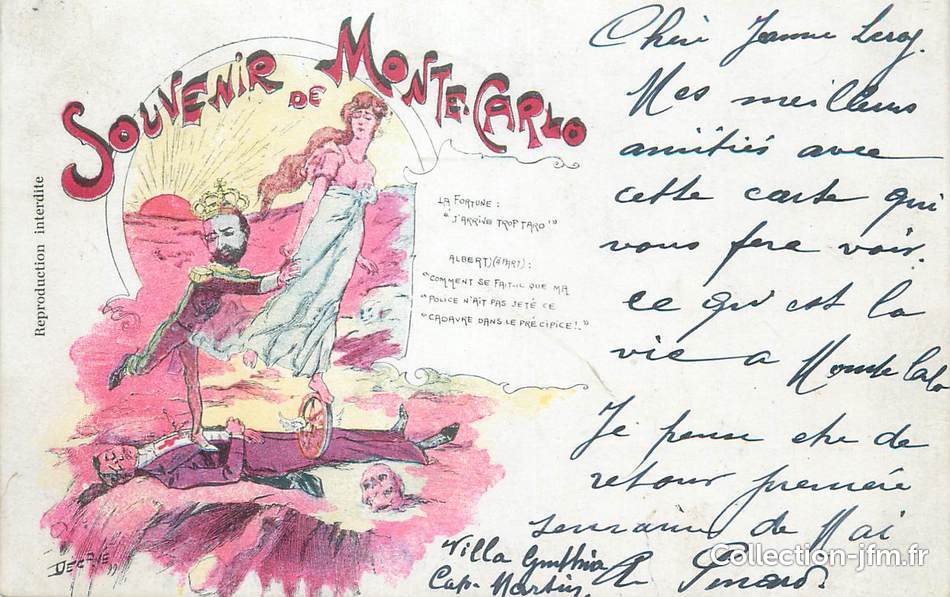 SOUVENIR DE MONTE-CARLO
Reproduction interdite
LA FORTUNE :
"J'ARRIVE TROP TARD"
ALBERT (APART) :
"COMMENT SE FAIT-IL QUE MA
"POLICE N'AIT PAS JETÉ CE
"CADAVRE DANS LE PRÉCIPICE!.."
Jeanne Leroy.
Mes meilleurs
amitiés avec
cette carte qui
vous fera voir.
ce qu'est la
vie a Monte Carlo
Je pense etre de
retour première
semaine de Mai
Villa Cynthia
Cap-Martin
Collection-jfm.fr